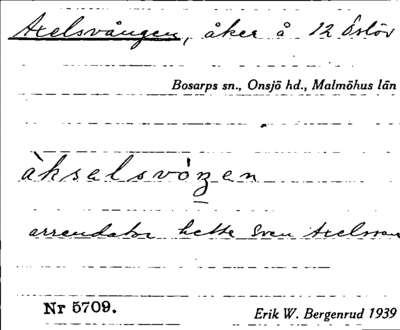 Axelsvången, åker å 12 Öslöv
Bosarps sn., Onsjö hd., Malmöhus län
àkselsvóŋen
arrendator hette Sven Axelsson
Nr 5709.
Erik W. Bergenrud 1939